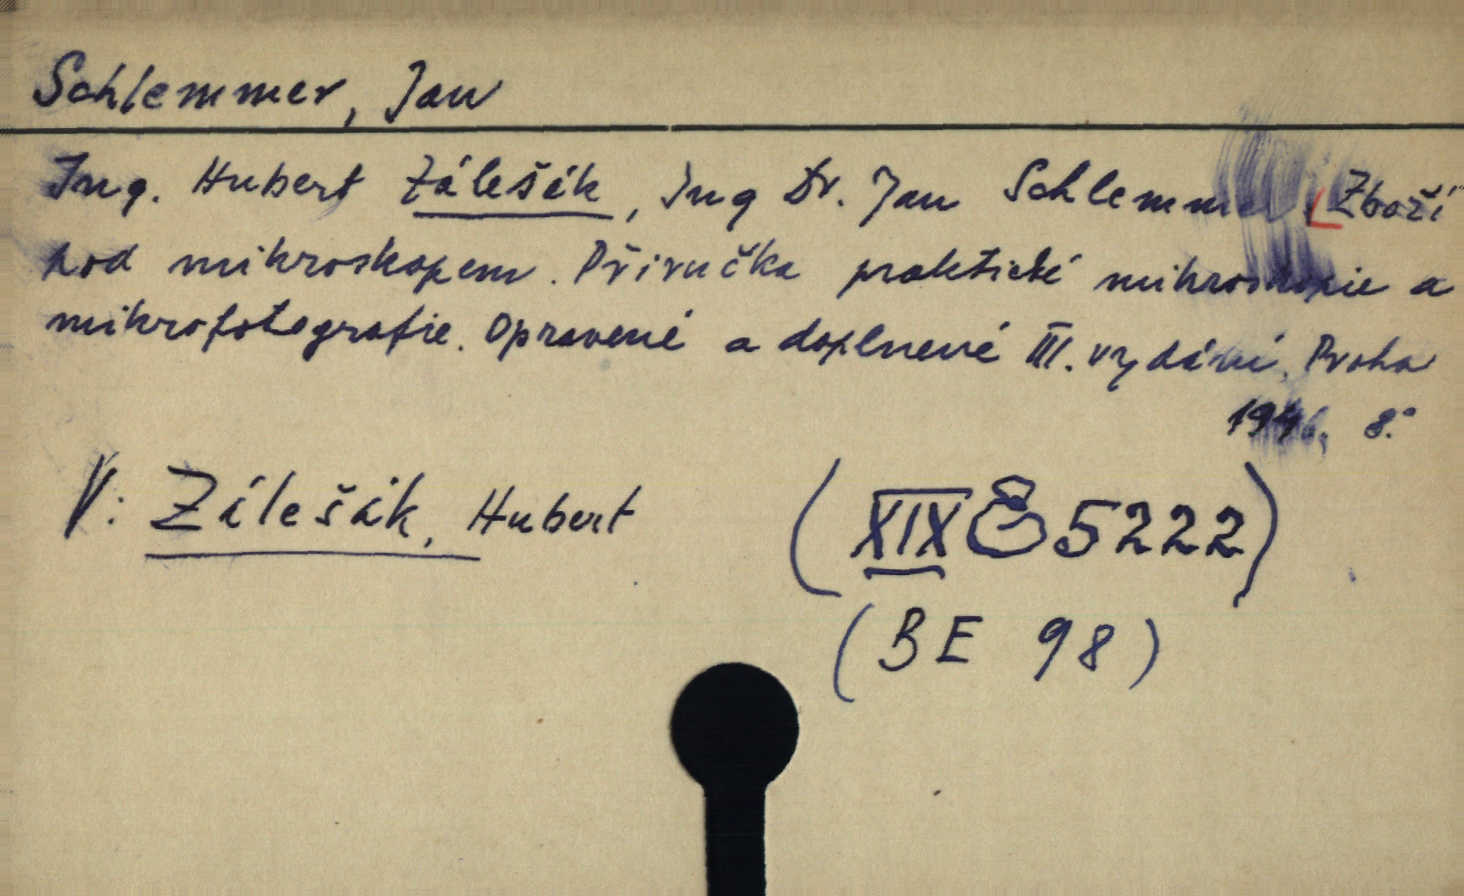 Schlemmer, Jan
Ing. Hubert Zálešák, Ing Dr. Jan Schlemmer Zboží
pod mikroskopem. Příručka praktické mikroskopie a
mikrofotografie. Opravené a doplnené III. vydání, Praha
1946, 8.°
V: Zálešák, Hubert
(XIX E 5222)
(BE 98)